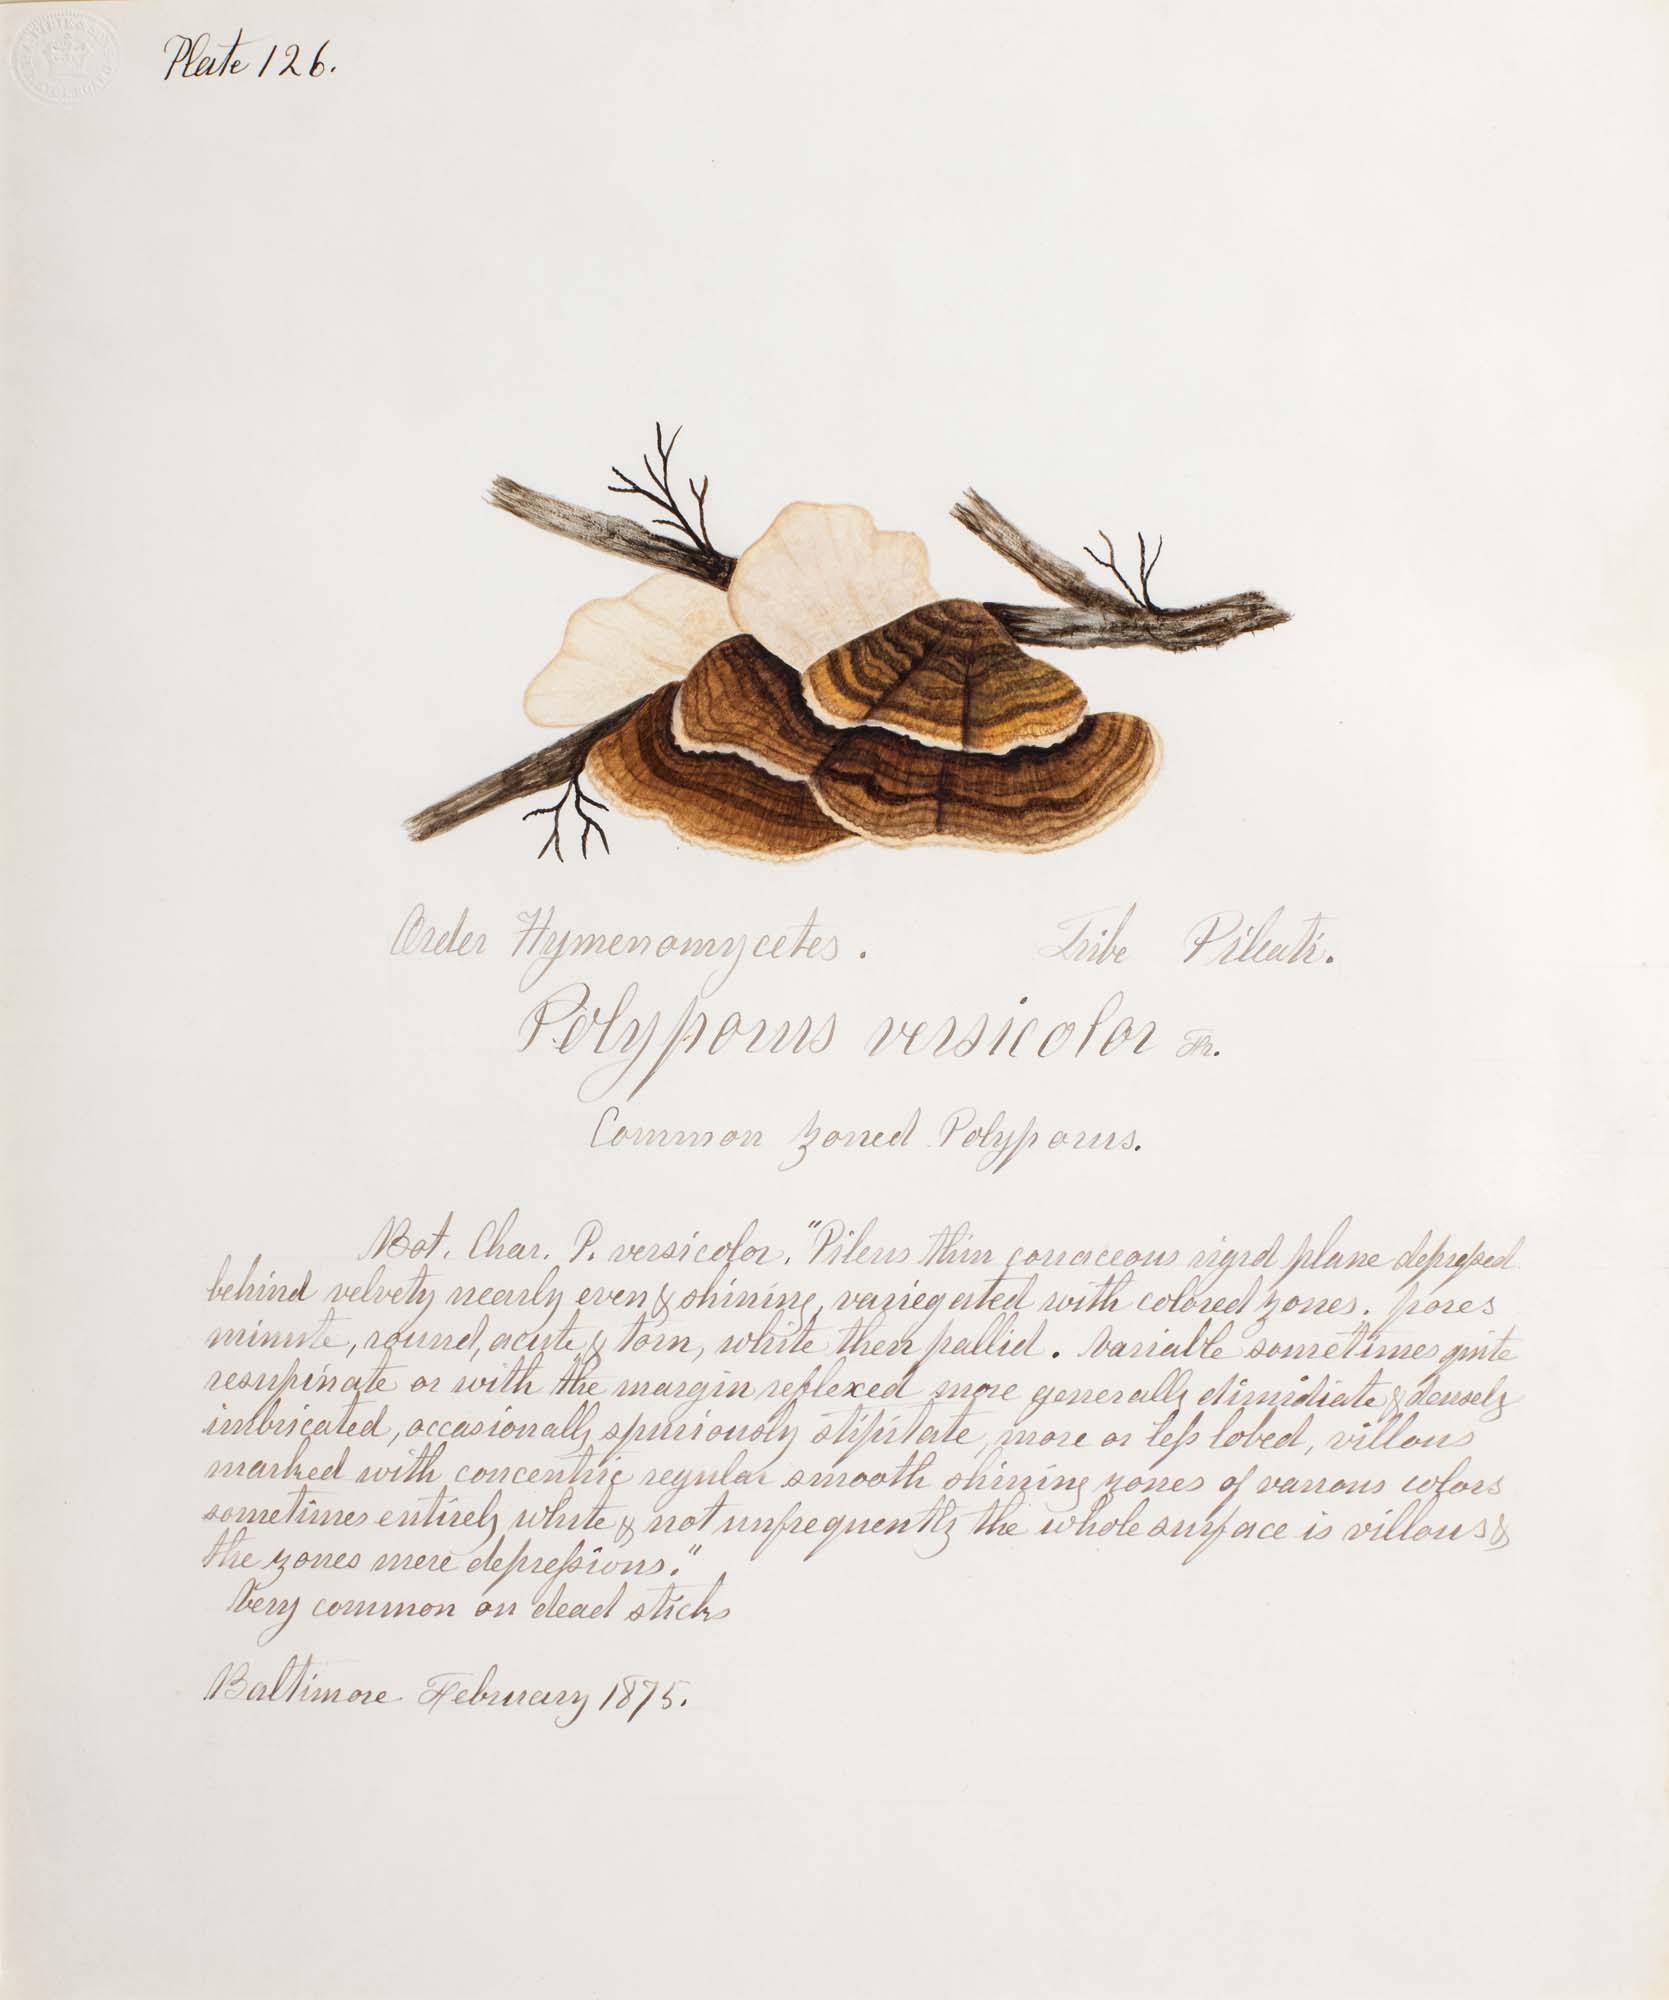 Plate 126.
Order Hymenomycetes. Tribe Pileati.
Polyporus versicolor Fr.
Common zoned Polyporus.
Bot. Char. P. versicolor. "Pileus thin coriaceous rigid plane depressed
behind velvety nearly even & shining, variegated with colored zones. pores
minute, round, acute & torn, white then pallid. Variable sometimes quite
resupinate or with the margin reflexed more generally dimidiate & densely
imbricated, occasionally spuriously stipitate, more or less lobed, villous
marked with concentric regular smooth shining zones of various colors
sometimes entirely white & not unfrequently the whole surface is villous &
the zones mere depressions."
Very common on dead sticks
Baltimore February 1875.